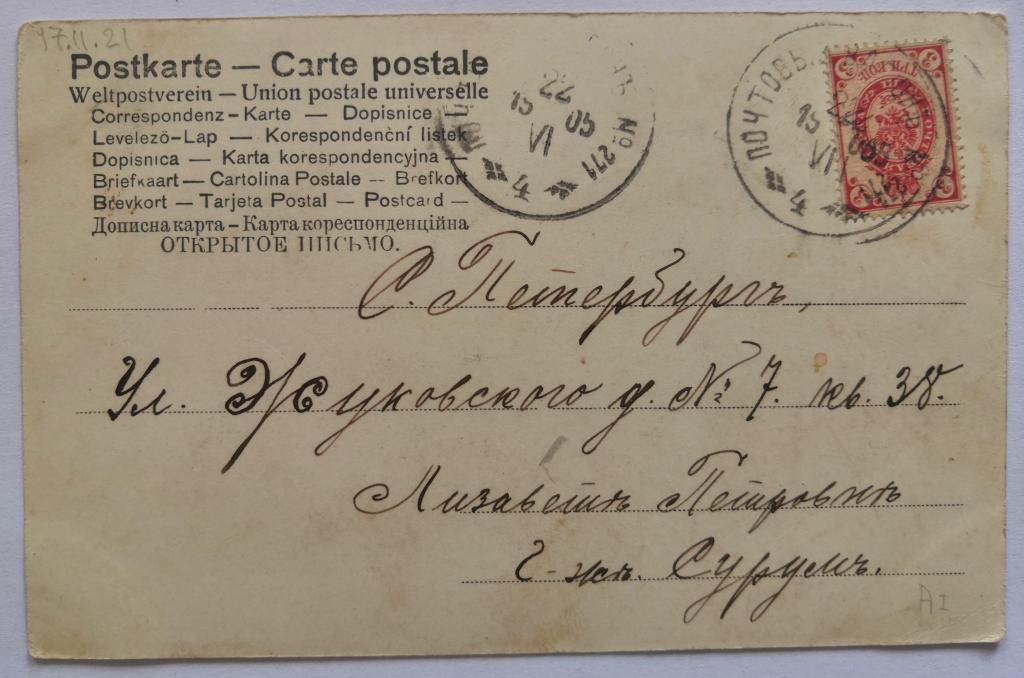 17.11.21
Postkarte — Carte postale
Weltpostverein — Union postale universelle
Correspondenz-Karte — Dopisnice
Levelező-Lap — Korespondenční lístek
Dopisnica — Karta korespondencyjna —
Briefkaart — Cartolina Postale — Brefkort
Brevkort — Tarjeta Postal — Postcard —
Дописна карта - Карта кореспонденційна
ОТКРЫТОЕ ПИСЬМО.
22
13 05
VI
№ 271
4
ПОЧТОВЪ
22
13 05
VI
4
3 3
ТРИ КОП.
С. Петербургъ,
Ул. Жуковского д. № 7. кв. 38.
Лизаветѣ Петровнѣ
Г-жѣ. Сурумъ.
AI